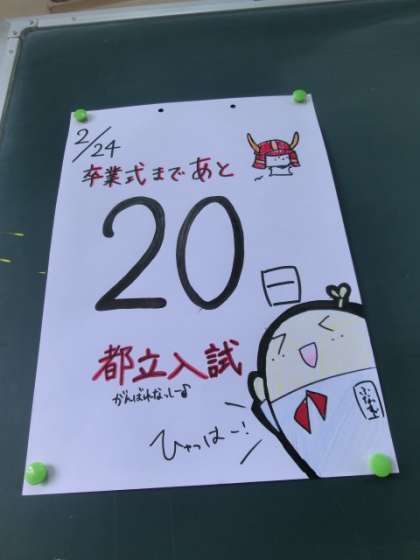 2/24
卒業式まであと
20
日
都立入試
がんばれなっしー♪
ひゃっはー!